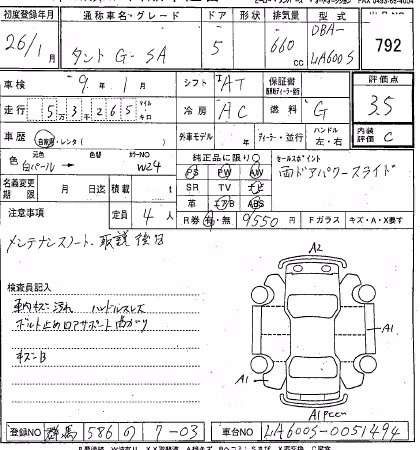 初度登録年月 通称車名・グレード ドア 形状 排気量 型式
26/1月 タント G-SA 5 660cc DBA-LA600S 792
車検 9年 1月 シフト IAT 保証書 評価点
走行 5 3万 2 6 5 マイル キロ 冷房 AC 燃料 G 3.5
車歴 自家用・レンタ( ) 外車モデル 年 ディーラー・並行 ハンドル 左・右 内装評価 C
元色 色替 カラーNO 純正品に限り○ セールスポイント
白パール→ W24 PS PW AW 両ドアパワースライド
名義変更期限 月 日迄 積載 t SR TV ナビ
革 エアB ABS
注意事項 定員 4人 R券 有・無 9550円 Fガラス キズ・A・X要す
メンテナンスノート、取説 後日
検査員記入 A2
車内キズ汚れ ハンドルスレ
ボルト止めロアサポート曲がり
キズ B
A1
A1
A1 Peen
登録NO 群馬 586 の 7-03 車台NO LA600S-0051494